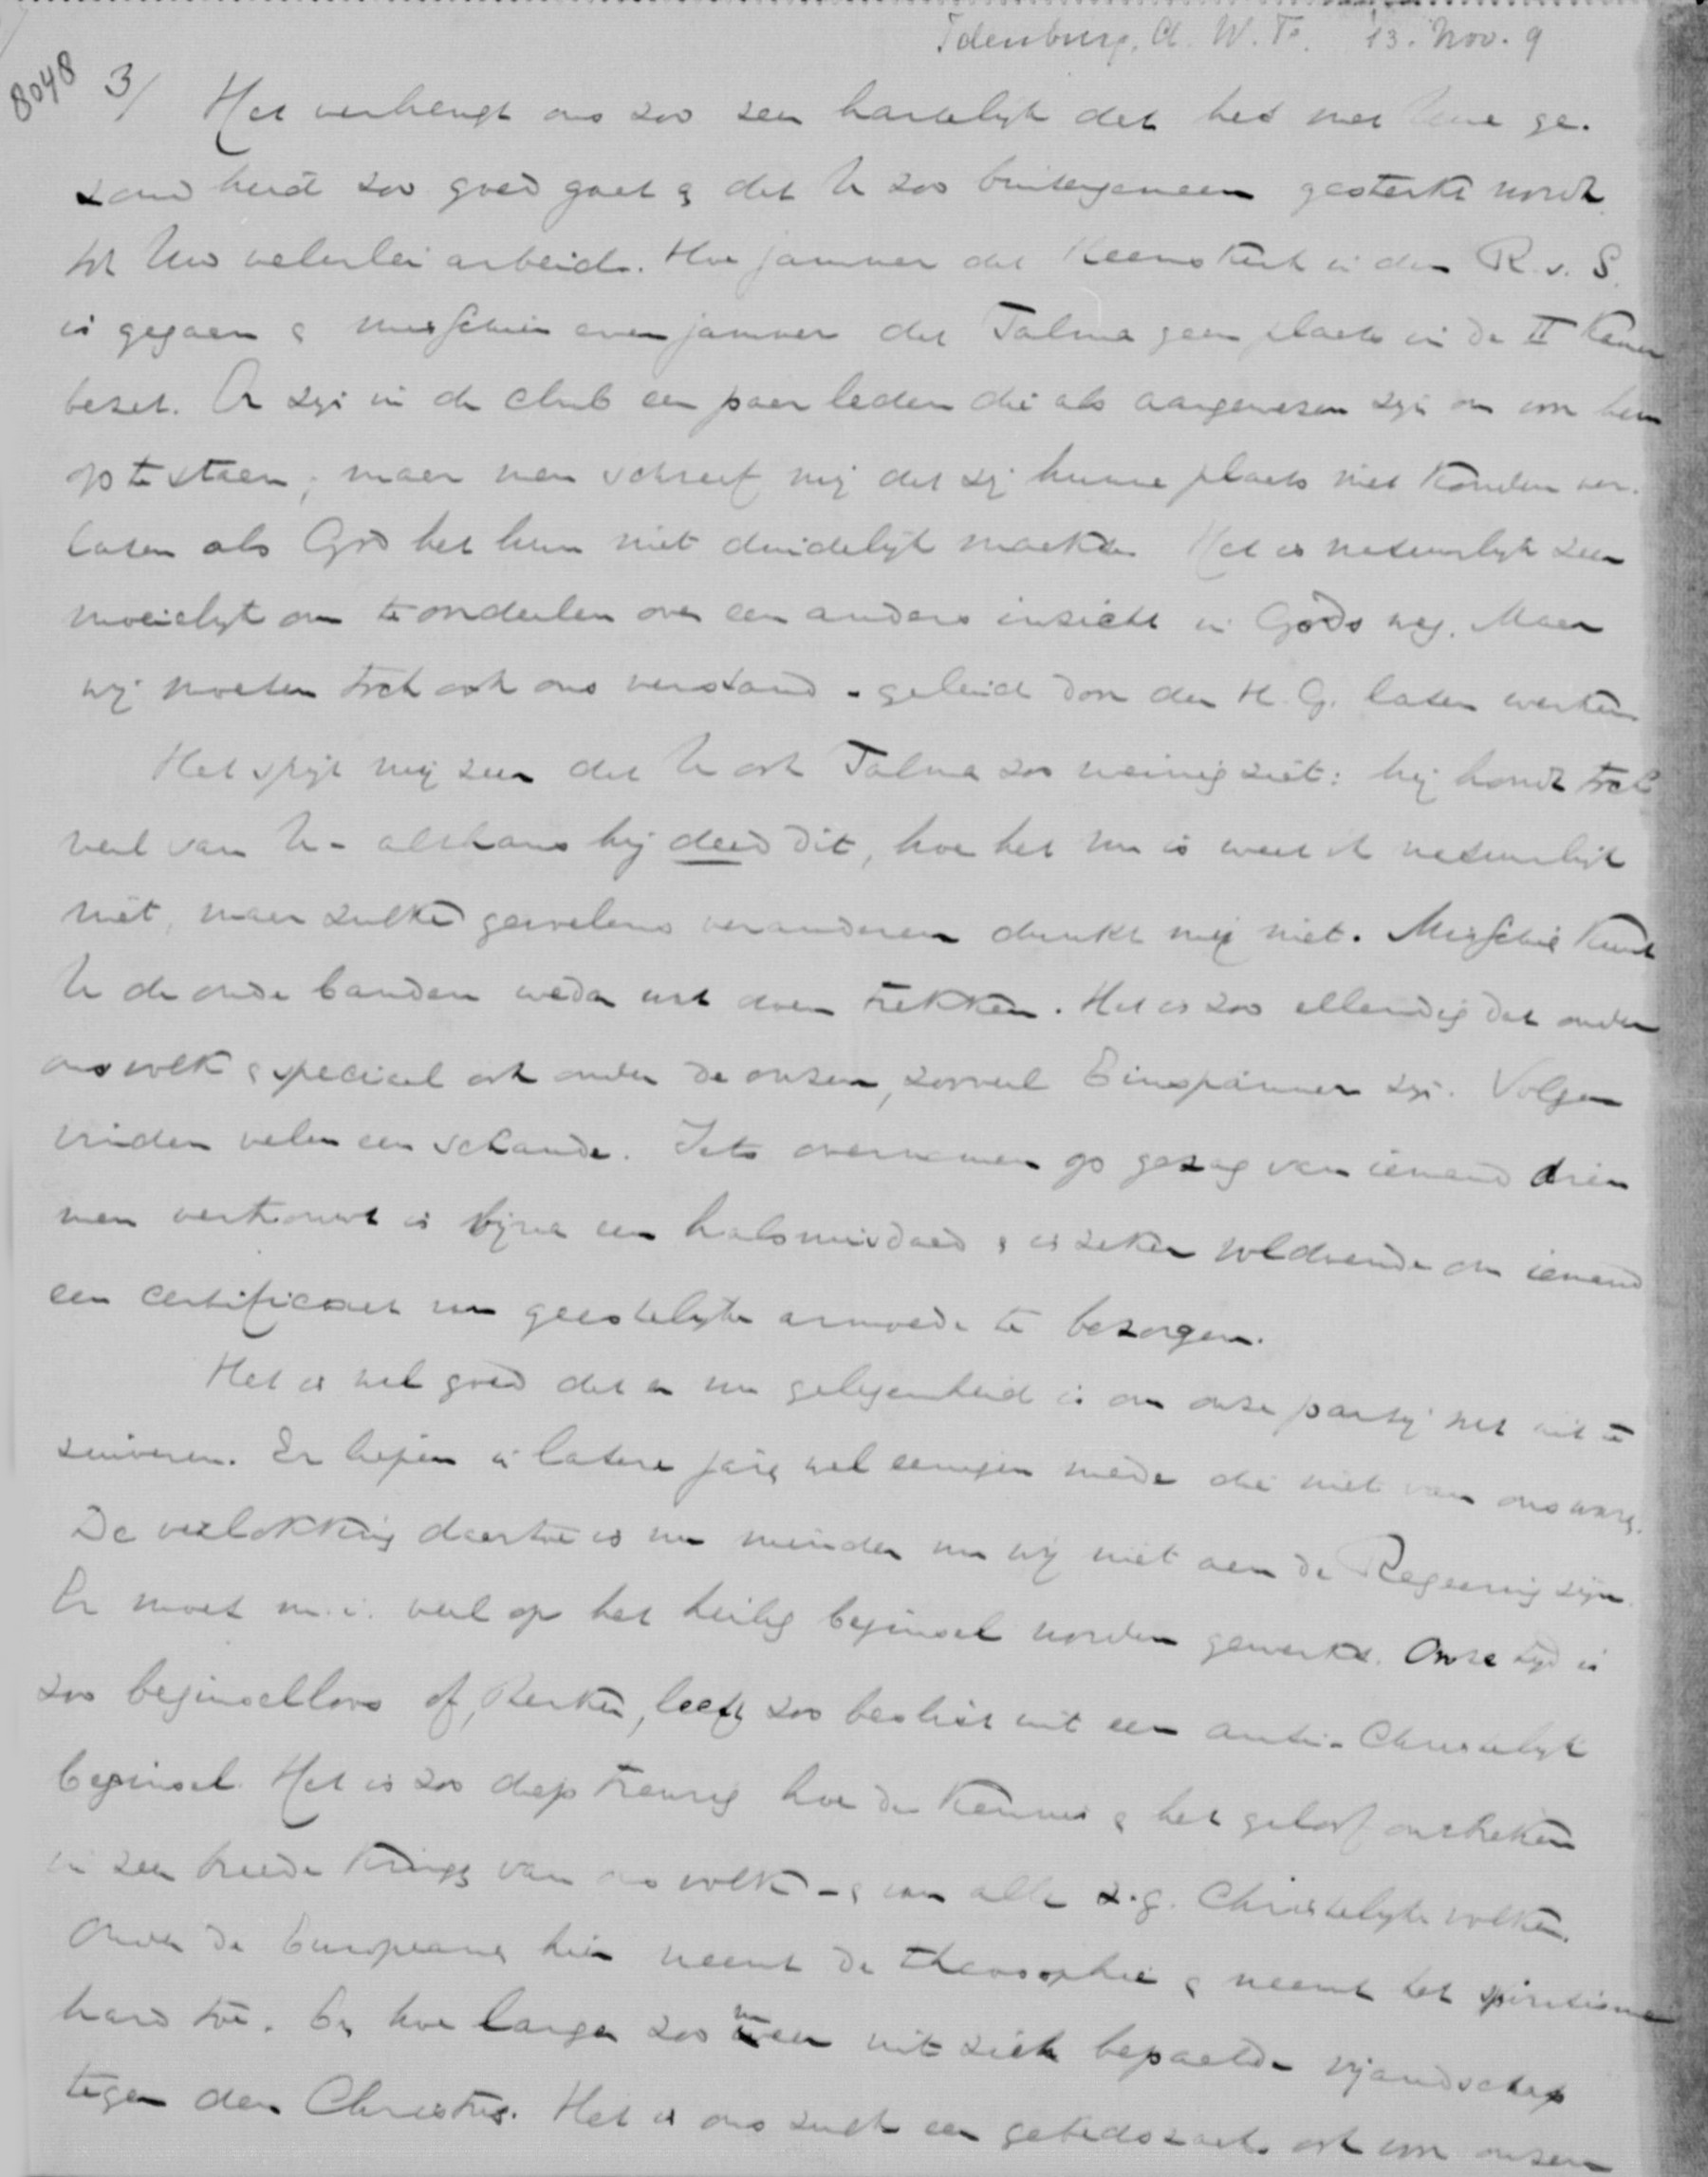 Idenburg, A. W. F. 13. Nov. 9
8048
3/ Het verheugt ons zoo zeer hartelijk dat het met Uwe ge-
zondheid zoo goed gaat & dat U zoo buitengemeen gesterkt wordt
tot Uw velerlei arbeid. Hoe jammer dat Heemskerk in den R.v.S.
is gegaan & misschien even jammer dat Talma geen plaats in de II Kamer
bezet. Er zijn in de club een paar leden die als aangewezen zijn om voor hem
op te staan; maar men schreef mij dat zij hunne plaats niet konden ver-
laten als God het hun niet duidelijk maakte. Het is natuurlijk zeer
moeielijk om te oordeelen over een anders inzicht in Gods weg. Maar
wij moeten toch ook ons verstand - geleid door den H.G. laten werken
Het spijt mij zeer dat U ook Talma zoo weinig ziet: hij houdt toch
veel van U - althans hij deed dit, hoe het nu is weet ik natuurlijk
niet, maar zulke gevoelens veranderen dunkt mij niet. Misschien kunt
U de oude banden weder wat doen trekken. Het is zoo ellendig dat onder
ons volk & speciaal ook onder de onzen, zooveel Einspänner zijn. Volgen
vinden velen een schande. Iets overnemen op gezag van iemand dien
men vertrouwt is bijna een halsmisdaad & is zeker voldoende om iemand
een certificaat van geestelijke armoede te bezorgen.
Het is wel goed dat er nu gelegenheid is om onze partij wat uit te
zuiveren. Er liepen in latere jaren wel eenigen mede die niet van ons waren.
De verlokking daartoe is nu minder nu wij niet aan de Regeering zijn.
Er moet m.i. veel op het heilig beginsel worden gewerkt. Onze tijd is
zoo beginselloos of, sterker, leeft zoo beslist uit een anti-Christelijk
beginsel. Het is zoo diep treurig hoe de kennis & het geloof ontbreken
in zeer breede kringen van ons volk - & van alle z.g. Christelijke volken.
Onder de Europeanen hier neemt de theosophie & neemt het spiritisme
hard toe. En hoe langer zoo meer uit zich bepaalde vijandschap
tegen den Christus. Het is ons zulk een gebedszaak ook voor onzen